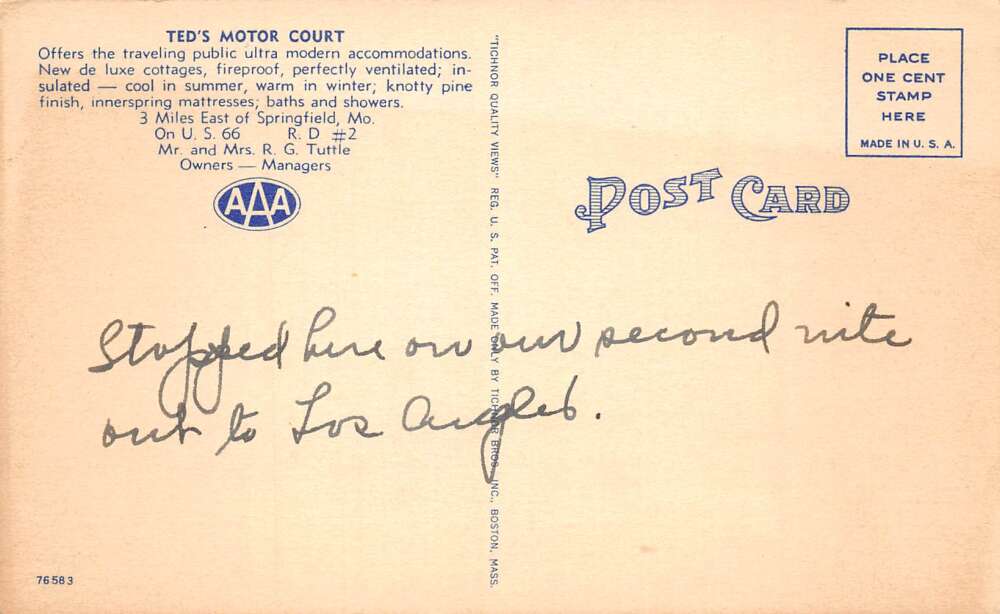 TED'S MOTOR COURT
Offers the traveling public ultra modern accommodations.
New de luxe cottages, fireproof, perfectly ventilated; in-
sulated — cool in summer, warm in winter; knotty pine
finish, innerspring mattresses; baths and showers.
3 Miles East of Springfield, Mo.
On U. S. 66 R. D #2
Mr. and Mrs. R. G. Tuttle
Owners — Managers
AAA
"TICHNOR QUALITY VIEWS" REG. U. S. PAT. OFF. MADE ONLY BY TICHNOR BROS., INC., BOSTON, MASS.
PLACE
ONE CENT
STAMP
HERE
MADE IN U. S. A.
POST CARD
Stopped here on our second nite
out to Los Angles.
76583